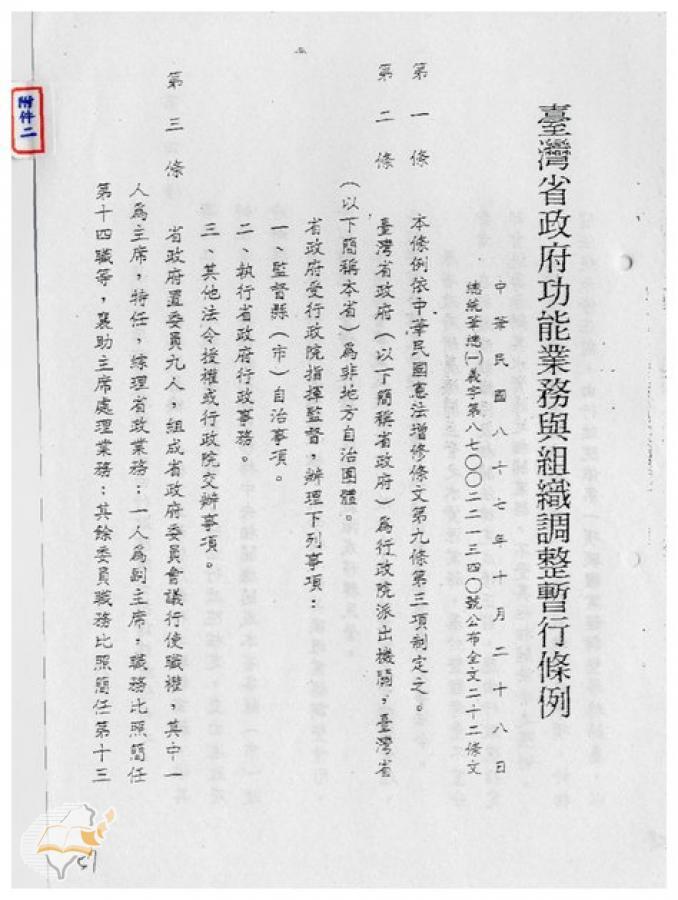 附件二
臺灣省政府功能業務與組織調整暫行條例
中華民國八十七年十月二十八日
總統華總(一)義字第八七〇〇二二一三四〇號公布全文二十二條文
第一條　本條例依中華民國憲法增修條文第九條第三項制定之。
第二條　臺灣省政府(以下簡稱省政府)為行政院派出機關，臺灣省
(以下簡稱本省)為非地方自治團體。
省政府受行政院指揮監督，辦理下列事項：
一、監督縣(市)自治事項。
二、執行省政府行政事務。
三、其他法令授權或行政院交辦事項。
第三條　省政府置委員九人，組成省政府委員會議行使職權，其中一
人為主席，特任，綜理省政業務；一人為副主席，職務比照簡任
第十四職等，襄助主席處理業務；其餘委員職務比照簡任第十三